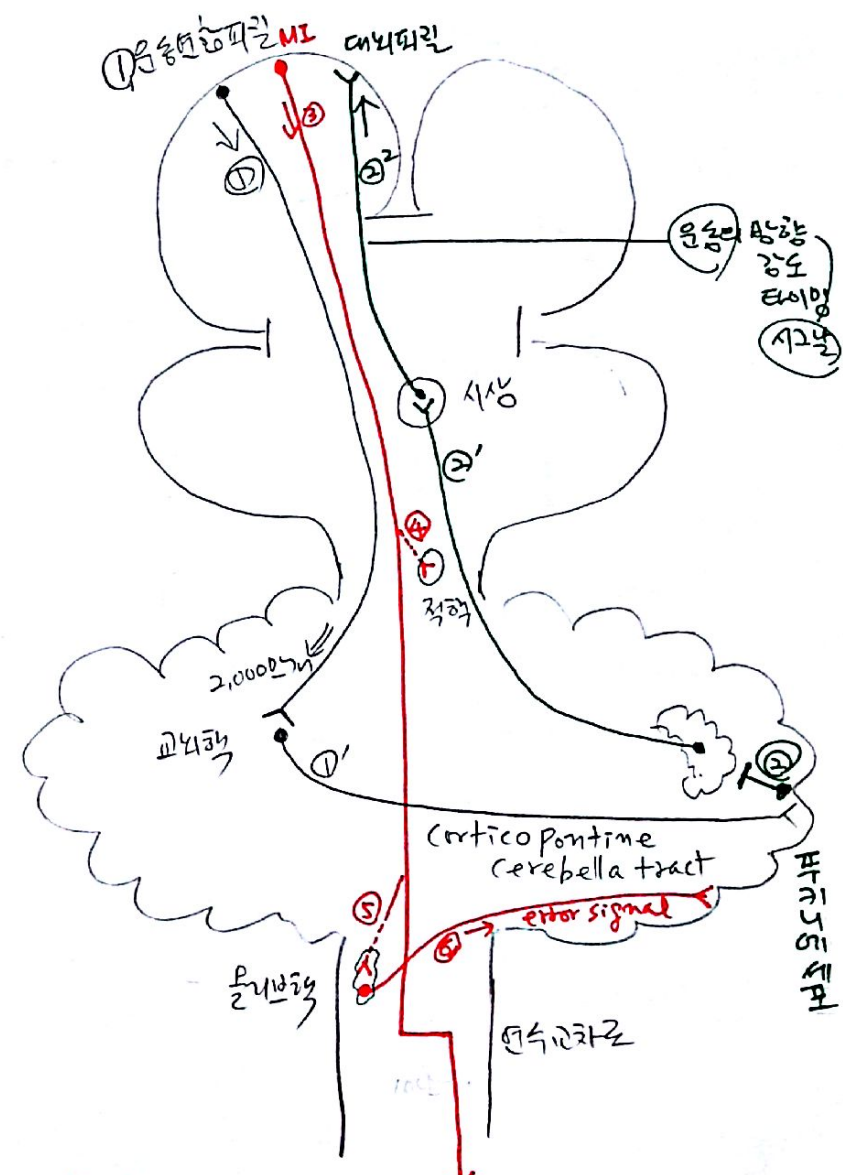 ① 운동연합피질 MI 대뇌피질
③
①
②²
운동의 방향
강도
타이밍
시그날
시상
②′
④
적핵
2,000만개
교뇌핵
①′
②
Cortico pontine
cerebella tract
푸키니에세포
⑤
error signal
⑥
올리브핵
연수교차로